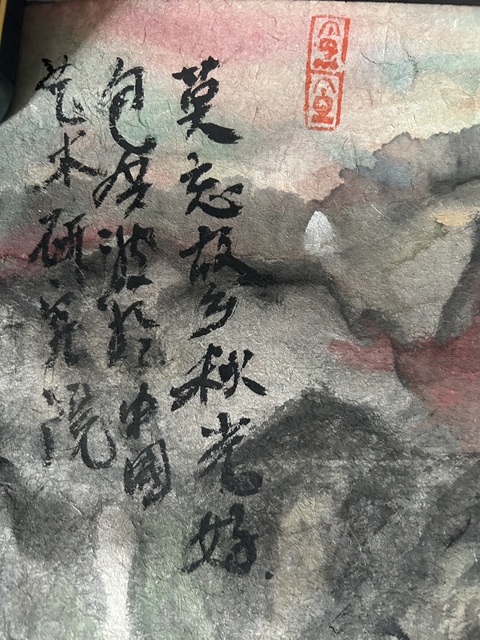 莫忘故乡秋光好
包波於中国
艺术研究院